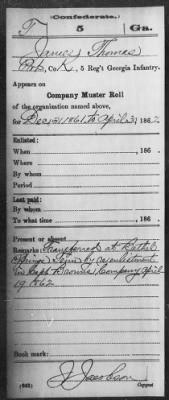 Confederate.
T 5 Ga.
James Thomas
Pvt, Co. K, 5 Reg't Georgia Infantry.
Appears on
Company Muster Roll
of the organization named above,
for Dec 31 1861 to April 30, 1862
Enlisted:
When , 186 .
Where
By whom
Period
Last paid:
By whom
To what time , 186 .
Present or absent
Remarks: Transferred at Bethel
Springs Tenn by reenlistment
in Capt Company April
19 1862
Book mark:
(642) Copyist.